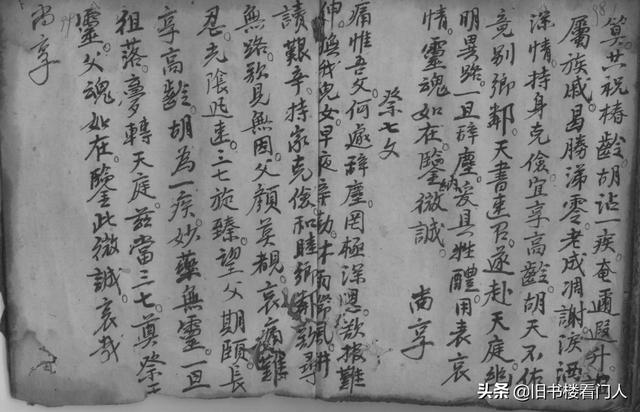 算共祝椿齡胡沾一疾奄邇遐升
屬族戚曷勝涕零老成凋謝淚洒
深情持身克儉宜享高齡胡天不佑
竟别鄉鄰天書速召遂赴天庭幽
明異路一旦辞塵爰具牲醴用表哀
情靈魂如在鑒納微誠 尚享
祭七文
痛惟吾父何遽辞塵罔極深恩欲报難
伸我兒女早夜辛劬沐雨櫛風
艱辛持家克儉和睦鄉鄰尋
無路欲見無因父顔莫覩哀痛難
忍光陰迅速三七旋臻望父期頤長
享高齡胡為一疾妙藥無靈一旦
祖落夢轉天庭兹當三七奠祭
靈父魂如在鑒此微誠哀哉
尚享
头条 @旧书楼看门人